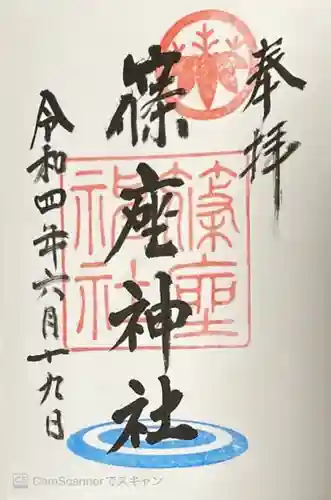 奉拝
篠座神社
篠座
神社
令和四年六月十九日
CamScannerでスキャン